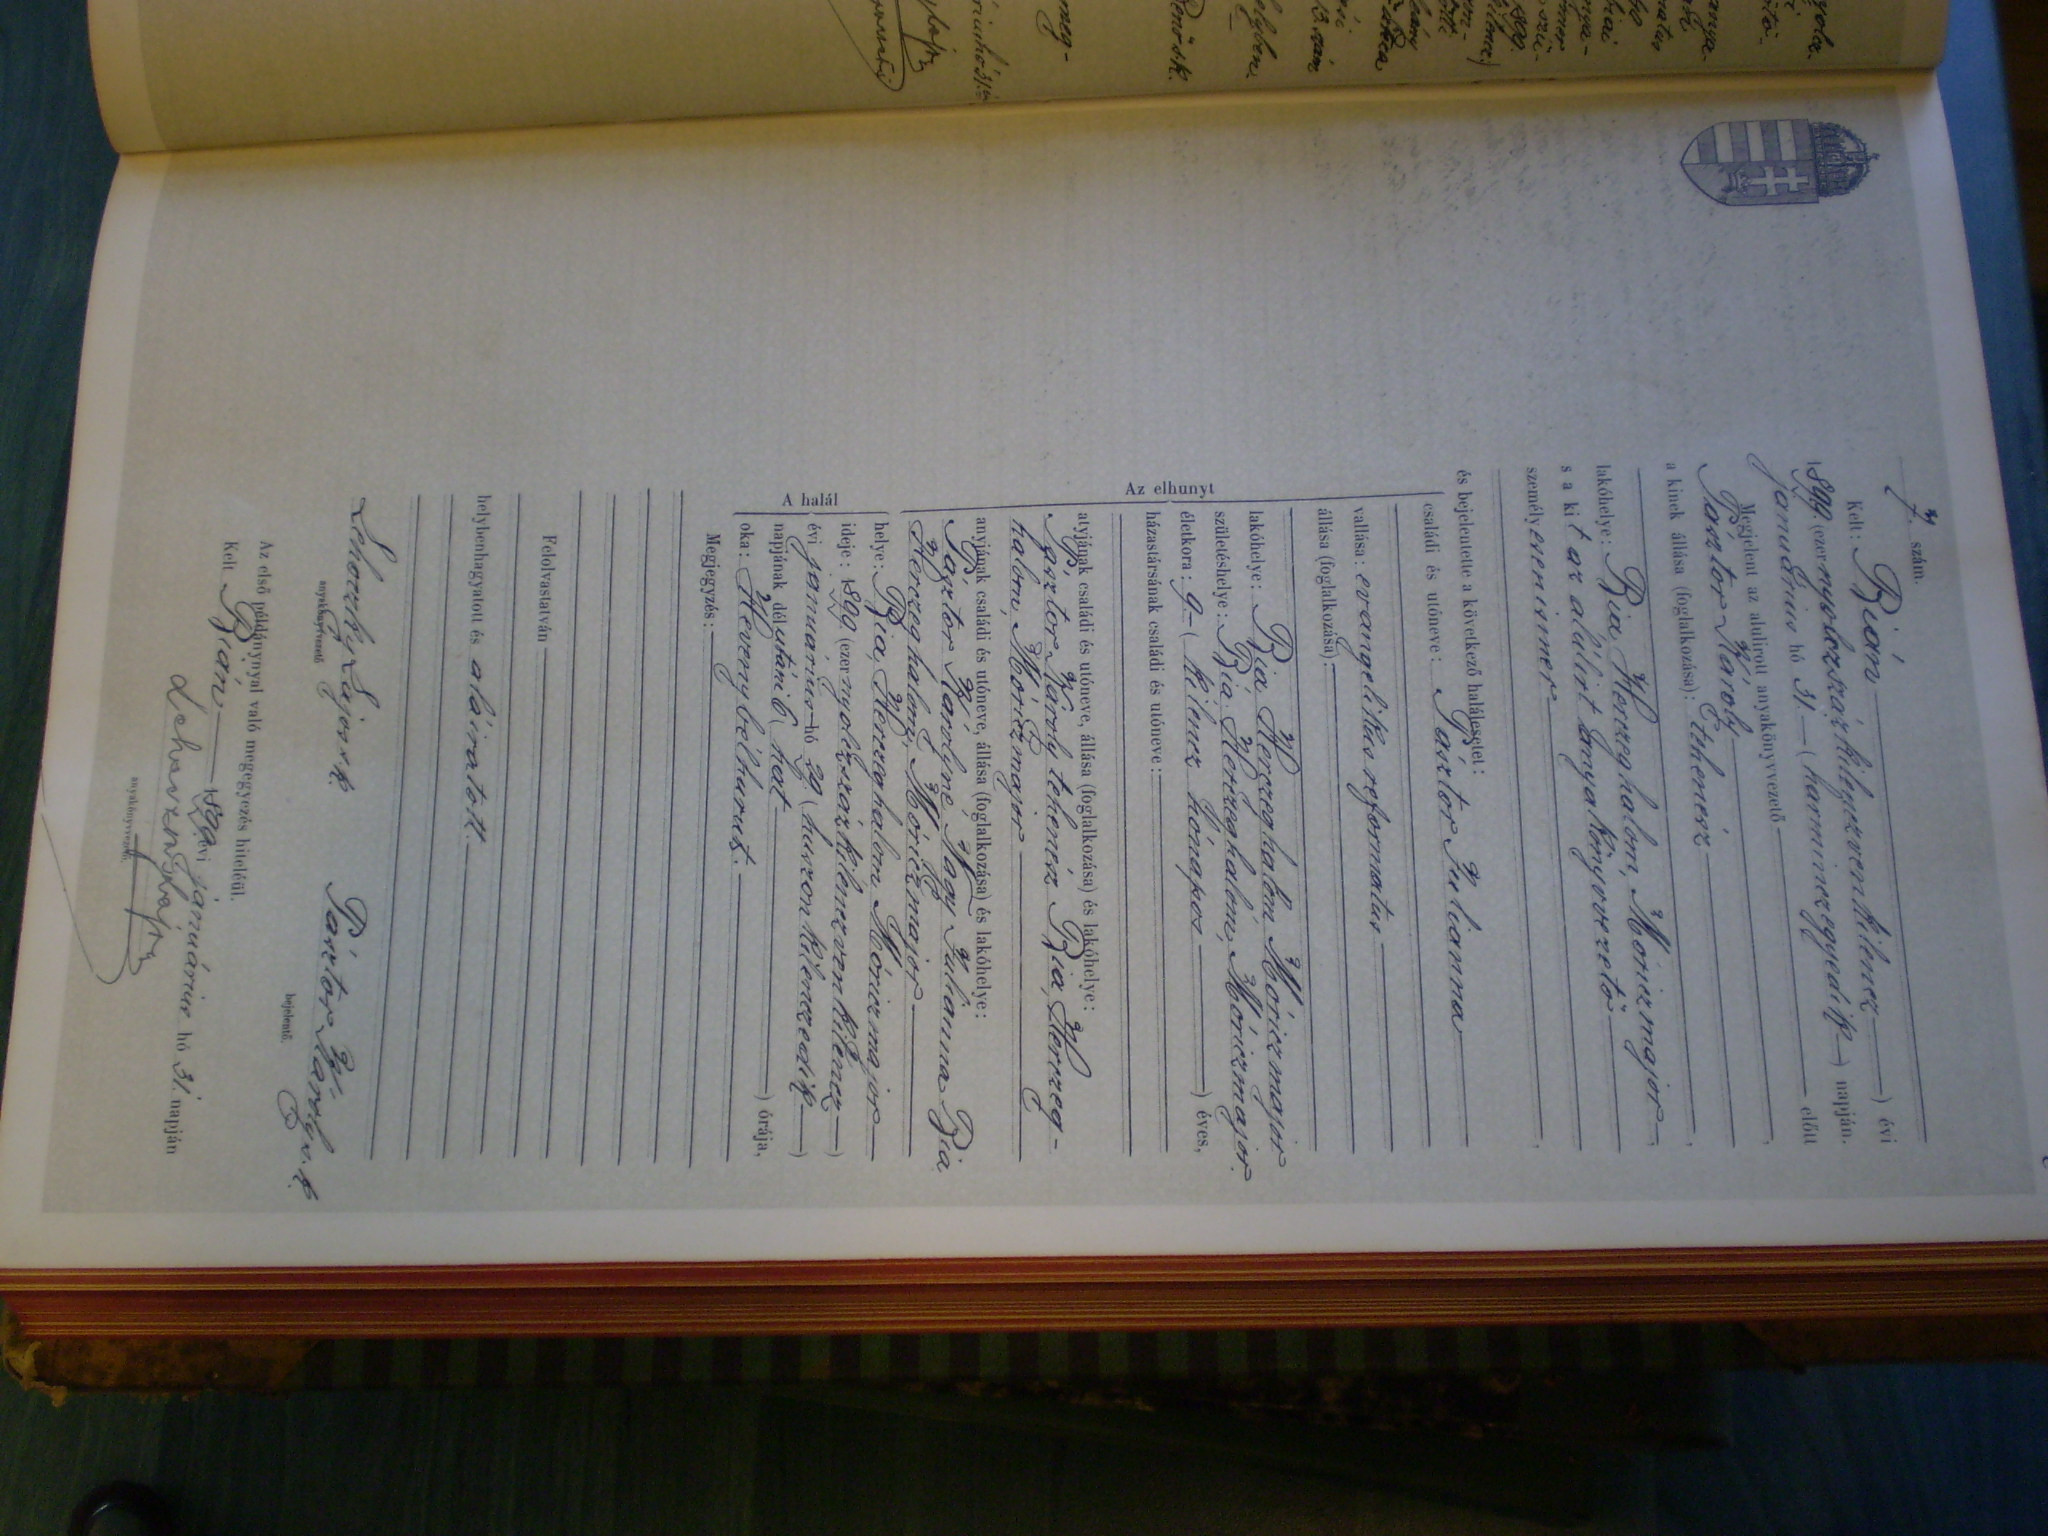 7. szám.
Kelt: Bián ) évi
1899 (ezernyolczszázkilenczvenkilencz
januárius hó 31. (harminczegyedik) napján.
Megjelent az alulirott anyakönyvvezető előtt
Pásztor Károly
a kinek állása (foglalkozása): tehenész
lakóhelye: Bia, Herczeghalom, Móriczmajor,
s a kit az alulirt anyakönyvvezető
személyesen ismer
és bejelentette a következő halálesetet:
családi és utóneve: Pásztor Julianna
vallása: evangelikus reformatus
állása (foglalkozása):
Az elhunyt
lakóhelye: Bia, Herczeghalom Móriczmajor
születéshelye: Bia. Herczeghalom, Móriczmajor.
életkora: 9 (kilencz hónapos ) éves,
házastársának családi és utóneve:
atyjának családi és utóneve, állása (foglalkozása) és lakóhelye:
Pásztor Károly tehenész Bia, Herczeg-
halom, Móriczmajor
anyjának családi és utóneve, állása (foglalkozása) és lakóhelye:
Pásztor Károlyné, Nagy Julianna Bia
Herczeghalom, Móriczmajor
A halál
helye: Bia, Herczeghalom Móriczmajor
ideje: 1899 (ezernyolczszázkilenczvenkilencz)
évi januárius hó 29 (huszonkilenczedik)
napjának délutáni 6 (hat ) órája,
oka: Heveny bélhurut.
Megjegyzés:
Felolvastatván
helybenhagyatott és aláiratott.
Lehovszky Lajos s.k. Pásztor Károly s.k.
anyakönyvvezető bejelentő.
Az első példánynyal való megegyezés hiteléül.
Kelt Bián 1899 évi januárius hó 31. napján
Lehovszky Lajos
anyakönyvvezető.